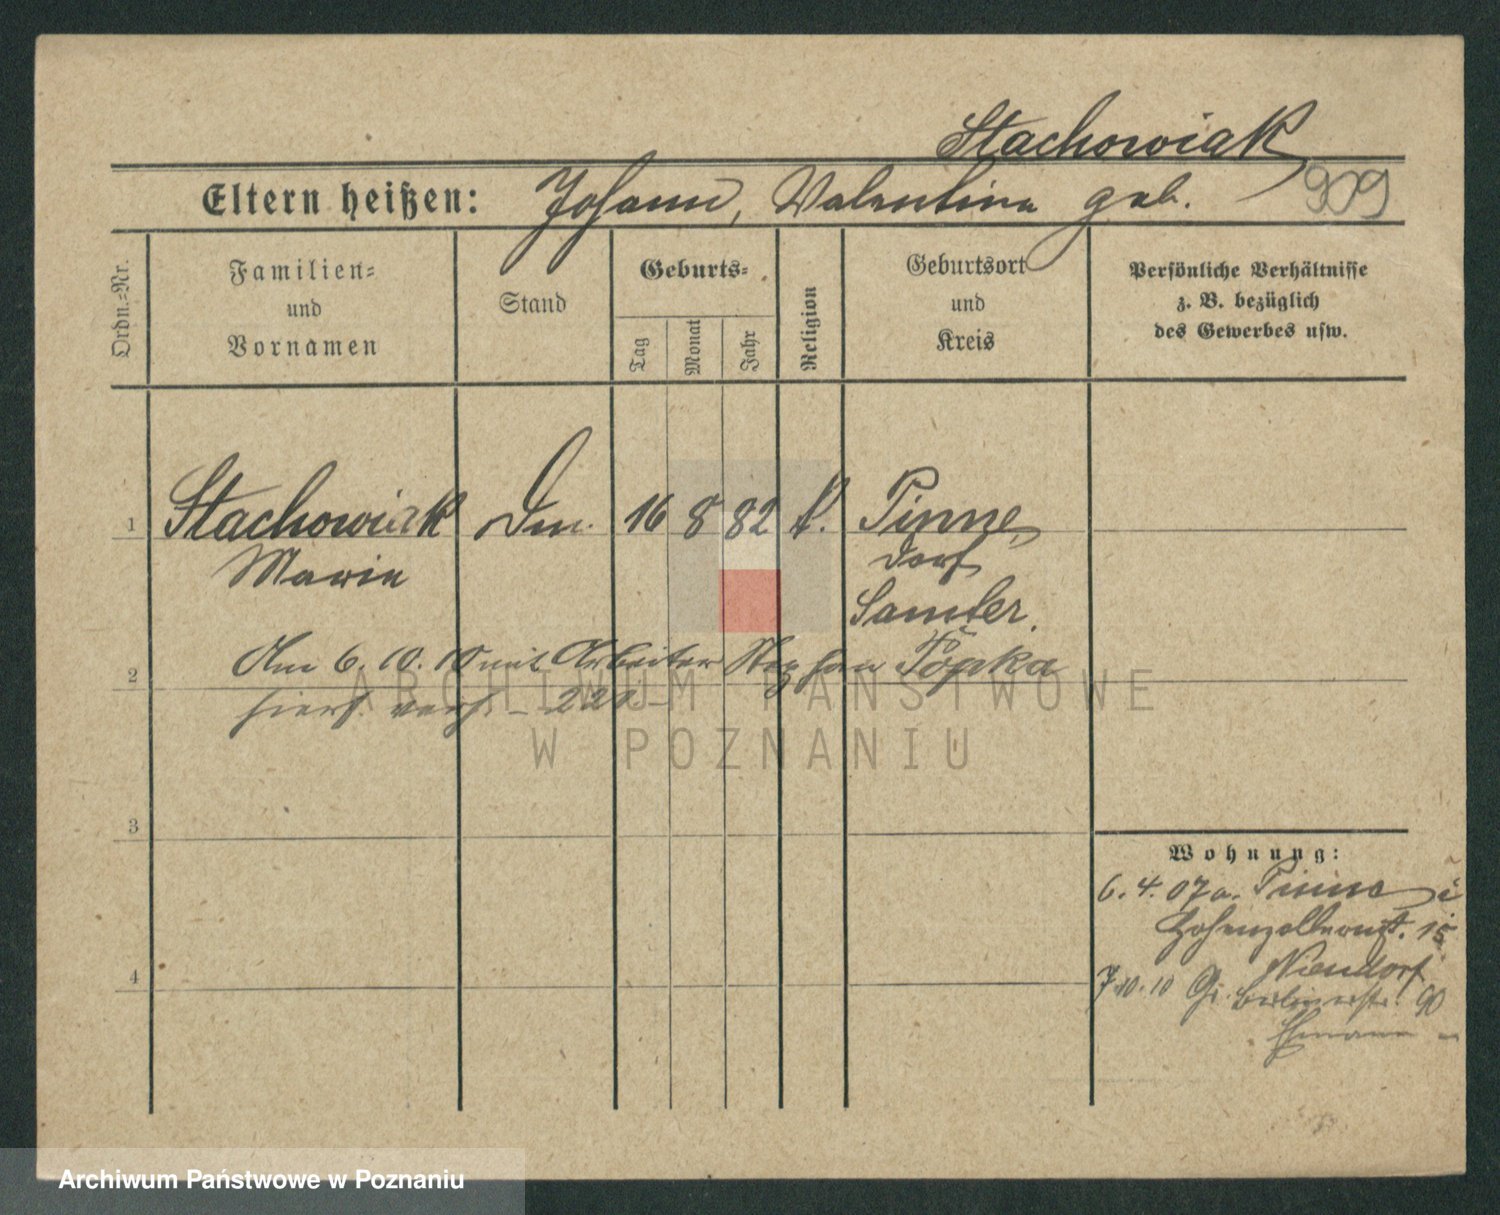 Stachowiak
Eltern heißen: Johann, Valentina geb. 909
Ordn.-Nr.
Familien-
und
Vornamen
Stand
Geburts-
Tag
Monat
Jahr
Religion
Geburtsort
und
Kreis
Persönliche Verhältnisse
z. B. bezüglich
des Gewerbes usw.
1 Stachowiak 16 8 82 k. Pinne,
Marie dorf
Samter.
2 Am 6.10.10 mit Arbeiter Stephan Töpka
hiers. verh. - 221 -
ARCHIWUM PAŃSTWOWE
W POZNANIU
3
Wohnung:
6.4.07 a. Pinne
Hohenzollernst. 15
Niendorf
4
7.10.10 Gr. Berlinerstr. 90
Ehemann
Archiwum Państwowe w Poznaniu